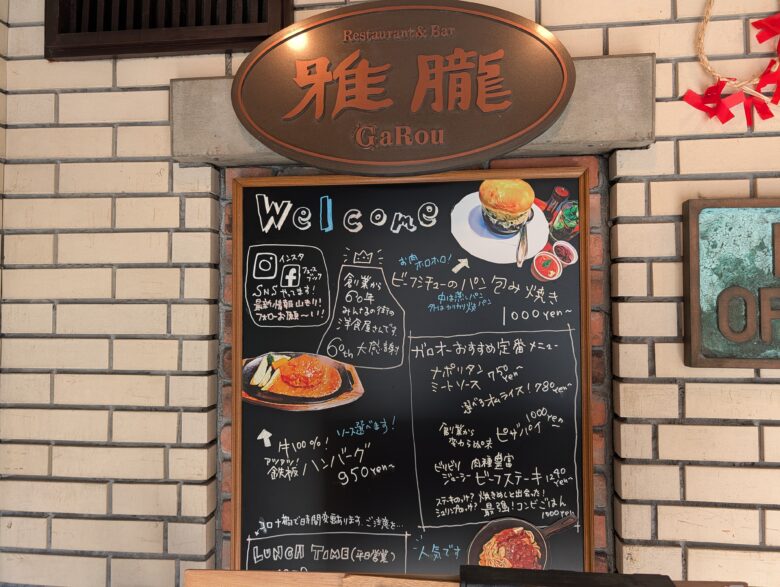 Restaurant & Bar
雅朧
GaRou
Welcome
インスタ
フェースブック
SNSやってます!
最新情報山もり!
フォローお願〜い!
創業から
60年
みんなの街の
洋食屋さんです
60th 大感謝
お肉ホロホロ!
ビーフシチューのパン包み焼き
中は蒸しパン
外はカリカリ焼パン
1000yen〜
牛100%!
アツアツ!
鉄板ハンバーグ
ソース選べます!
950yen〜
ガロオーおすすめ定番メニュー
ナポリタン
ミートソース 750yen〜
選べるオムライス! 780yen〜
創業から変わらぬ味 ピザパイ 1000yen〜
ビリビリ
ジューシー
肉種豊富
ビーフステーキ 1240yen〜
ステキのッケ? 焼きめしと出会った!
最強!コンビごはん
1000yen〜
コロナ禍で時間変動あります ご注意を…
LUNCH TIME(平日営業)
人気です
OP